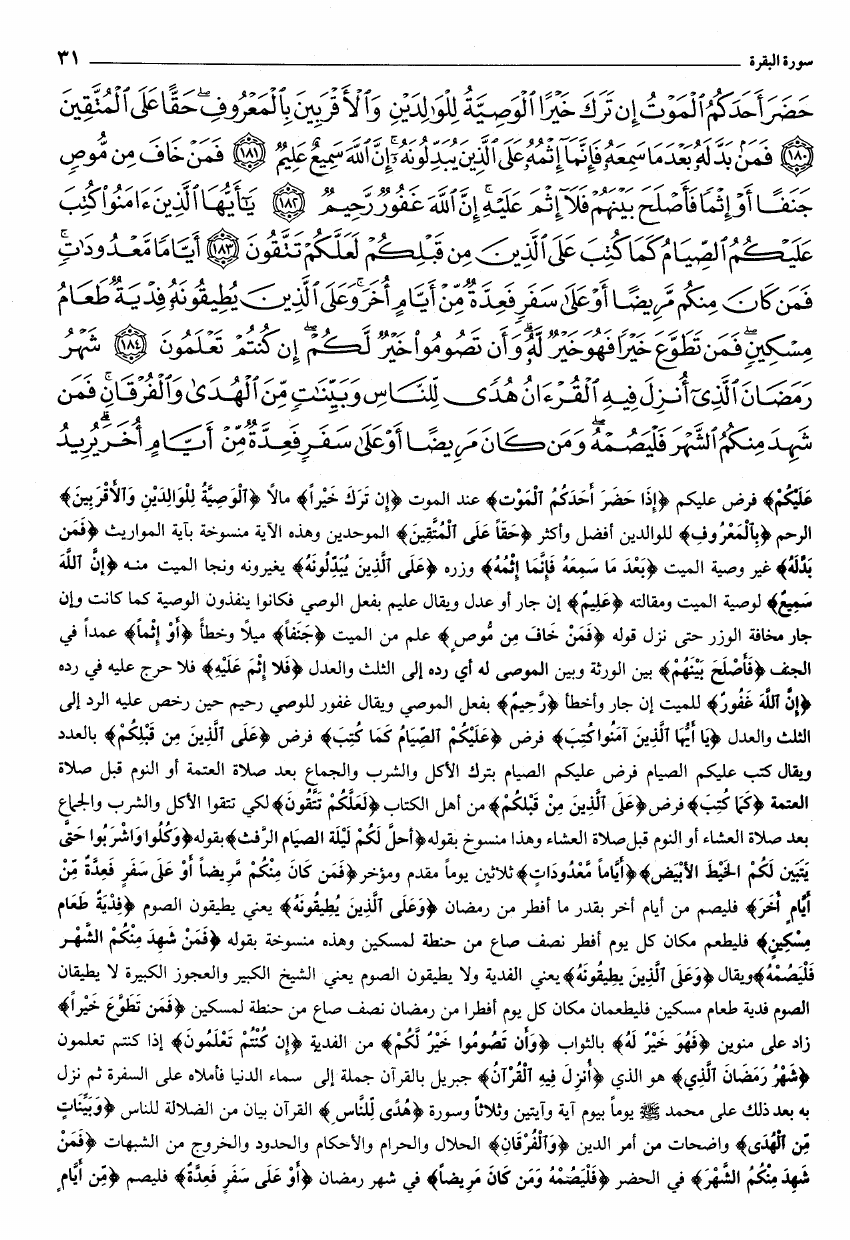 سورة البقرة ٣١
حَضَرَ أَحَدَكُمُ ٱلْمَوْتُ إِن تَرَكَ خَيْرًا ٱلْوَصِيَّةُ لِلْوَٰلِدَيْنِ وَٱلْأَقْرَبِينَ بِٱلْمَعْرُوفِ ۖ حَقًّا عَلَى ٱلْمُتَّقِينَ
١٨٠ فَمَنۢ بَدَّلَهُۥ بَعْدَمَا سَمِعَهُۥ فَإِنَّمَآ إِثْمُهُۥ عَلَى ٱلَّذِينَ يُبَدِّلُونَهُۥٓ ۚ إِنَّ ٱللَّهَ سَمِيعٌ عَلِيمٌ ١٨١ فَمَنْ خَافَ مِن مُّوصٍ
جَنَفًا أَوْ إِثْمًا فَأَصْلَحَ بَيْنَهُمْ فَلَآ إِثْمَ عَلَيْهِ ۚ إِنَّ ٱللَّهَ غَفُورٌ رَّحِيمٌ ١٨٢ يَٰٓأَيُّهَا ٱلَّذِينَ ءَامَنُوا۟ كُتِبَ
عَلَيْكُمُ ٱلصِّيَامُ كَمَا كُتِبَ عَلَى ٱلَّذِينَ مِن قَبْلِكُمْ لَعَلَّكُمْ تَتَّقُونَ ١٨٣ أَيَّامًا مَّعْدُودَٰتٍ ۚ
فَمَن كَانَ مِنكُم مَّرِيضًا أَوْ عَلَىٰ سَفَرٍ فَعِدَّةٌ مِّنْ أَيَّامٍ أُخَرَ ۚ وَعَلَى ٱلَّذِينَ يُطِيقُونَهُۥ فِدْيَةٌ طَعَامُ
مِسْكِينٍ ۖ فَمَن تَطَوَّعَ خَيْرًا فَهُوَ خَيْرٌ لَّهُۥ ۚ وَأَن تَصُومُوا۟ خَيْرٌ لَّكُمْ ۖ إِن كُنتُمْ تَعْلَمُونَ ١٨٤ شَهْرُ
رَمَضَانَ ٱلَّذِىٓ أُنزِلَ فِيهِ ٱلْقُرْءَانُ هُدًى لِّلنَّاسِ وَبَيِّنَٰتٍ مِّنَ ٱلْهُدَىٰ وَٱلْفُرْقَانِ ۚ فَمَن
شَهِدَ مِنكُمُ ٱلشَّهْرَ فَلْيَصُمْهُ ۖ وَمَن كَانَ مَرِيضًا أَوْ عَلَىٰ سَفَرٍ فَعِدَّةٌ مِّنْ أَيَّامٍ أُخَرَ ۗ يُرِيدُ
عَلَيْكُمْ﴾ فرض عليكم ﴿إِذَا حَضَرَ أَحَدَكُمُ ٱلْمَوْت﴾ عند الموت ﴿إِن تَرَكَ خَيْراً﴾ مالاً ﴿ٱلْوَصِيَّةُ لِلْوَالِدَيْنِ وَٱلأَقْرَبِينَ﴾
الرحم ﴿بِٱلْمَعْرُوفِ﴾ للوالدين أفضل وأكثر ﴿حَقّاً عَلَى ٱلْمُتَّقِينَ﴾ الموحدين وهذه الآية منسوخة بآية المواريث ﴿فَمَن
بَدَّلَهُ﴾ غير وصية الميت ﴿بَعْدَ مَا سَمِعَهُ فَإِنَّمَا إِثْمُهُ﴾ وزره ﴿عَلَى ٱلَّذِينَ يُبَدِّلُونَهُ﴾ يغيرونه ونجا الميت منه ﴿إِنَّ ٱللَّهَ
سَمِيعٌ﴾ لوصية الميت ومقالته ﴿عَلِيمٌ﴾ إن جار أو عدل ويقال عليم بفعل الوصي فكانوا ينفذون الوصية كما كانت وإن
جار مخافة الوزر حتى نزل قوله ﴿فَمَنْ خَافَ مِن مُّوصٍ﴾ علم من الميت ﴿جَنَفاً﴾ ميلاً وخطأ ﴿أَوْ إِثْماً﴾ عمداً في
الجنف ﴿فَأَصْلَحَ بَيْنَهُمْ﴾ بين الورثة وبين الموصى له أي رده إلى الثلث والعدل ﴿فَلا إِثْمَ عَلَيْهِ﴾ فلا حرج عليه في رده
﴿إِنَّ ٱللَّهَ غَفُورٌ﴾ للميت إن جار وأخطأ ﴿رَّحِيمٌ﴾ بفعل الموصي ويقال غفور للوصي رحيم حين رخص عليه الرد إلى
الثلث والعدل ﴿يَا أَيُّهَا ٱلَّذِينَ آمَنُوا كُتِبَ﴾ فرض ﴿عَلَيْكُمُ ٱلصِّيَامُ كَمَا كُتِبَ﴾ فرض ﴿عَلَى ٱلَّذِينَ مِن قَبْلِكُمْ﴾ بالعدد
ويقال كتب عليكم الصيام فرض عليكم الصيام بترك الأكل والشرب والجماع بعد صلاة العتمة أو النوم قبل صلاة
العتمة ﴿كَمَا كُتِبَ﴾ فرض ﴿عَلَى الَّذِينَ مِنْ قَبْلِكُمْ﴾ من أهل الكتاب ﴿لَعَلَّكُمْ تَتَّقُونَ﴾ لكي تتقوا الأكل والشرب والجماع
بعد صلاة العشاء أو النوم قبل صلاة العشاء وهذا منسوخ بقوله ﴿أحلَّ لَكُمْ لَيْلَةَ الصيَام الرَّفث﴾ بقوله ﴿وَكُلُوا وَاشْرَبُوا حَتَّى
يَتَبَين لَكُمُ الخَيْطَ الأَبْيَض﴾ ﴿أَيَّاماً مَّعْدُودَاتٍ﴾ ثلاثين يوماً مقدم ومؤخر ﴿فَمَن كَانَ مِنْكُمْ مَّرِيضاً أَوْ عَلَى سَفَرٍ فَعِدَّةٌ مِّنْ
أَيَّامٍ أُخَرَ﴾ فليصم من أيام أخر بقدر ما أفطر من رمضان ﴿وَعَلَى ٱلَّذِينَ يُطِيقُونَهُ﴾ يعني يطيقون الصوم ﴿فِدْيَةٌ طَعَام
مِسْكِينٍ﴾ فليطعم مكان كل يوم أفطر نصف صاع من حنطة لمسكين وهذه منسوخة بقوله ﴿فَمَنْ شَهِدَ مِنْكُمُ الشَّهْر
فَلْيَصُمْهُ﴾ ويقال ﴿وَعَلَى الَّذِينَ يطِيقُونَهُ﴾ يعني الفدية ولا يطيقون الصوم يعني الشيخ الكبير والعجوز الكبيرة لا يطيقان
الصوم فدية طعام مسكين فليطعمان مكان كل يوم أفطرا من رمضان نصف صاع من حنطة لمسكين ﴿فَمَن تَطَوَّعَ خَيْراً﴾
زاد على منوين ﴿فَهُوَ خَيْرٌ لَهُ﴾ بالثواب ﴿وَأَن تَصُومُوا خَيْرٌ لَّكُمْ﴾ من الفدية ﴿إِن كُنْتُمْ تَعْلَمُونَ﴾ إذا كنتم تعلمون
﴿شَهْرُ رَمَضَانَ ٱلَّذِي﴾ هو الذي ﴿أُنزِلَ فِيهِ ٱلْقُرْآنُ﴾ جبريل بالقرآن جملة إلى سماء الدنيا فأملاه على السفرة ثم نزل
به بعد ذلك على محمد ﷺ يوماً بيوم آية وآيتين وثلاثاً وسورة ﴿هُدًى لِّلنَّاسِ﴾ القرآن بيان من الضلالة للناس ﴿وَبَيِّنَاتٍ
مِّنَ ٱلْهُدَى﴾ واضحات من أمر الدين ﴿وَٱلْفُرْقَانِ﴾ الحلال والحرام والأحكام والحدود والخروج من الشبهات ﴿فَمَنْ
شَهِدَ مِنْكُمُ الشَّهْرَ﴾ في الحضر ﴿فَلْيَصُمْهُ وَمَن كَانَ مَرِيضاً﴾ في شهر رمضان ﴿أَوْ عَلَى سَفَرٍ فَعِدَّةٌ﴾ فليصم ﴿مِّنْ أَيَّامٍ